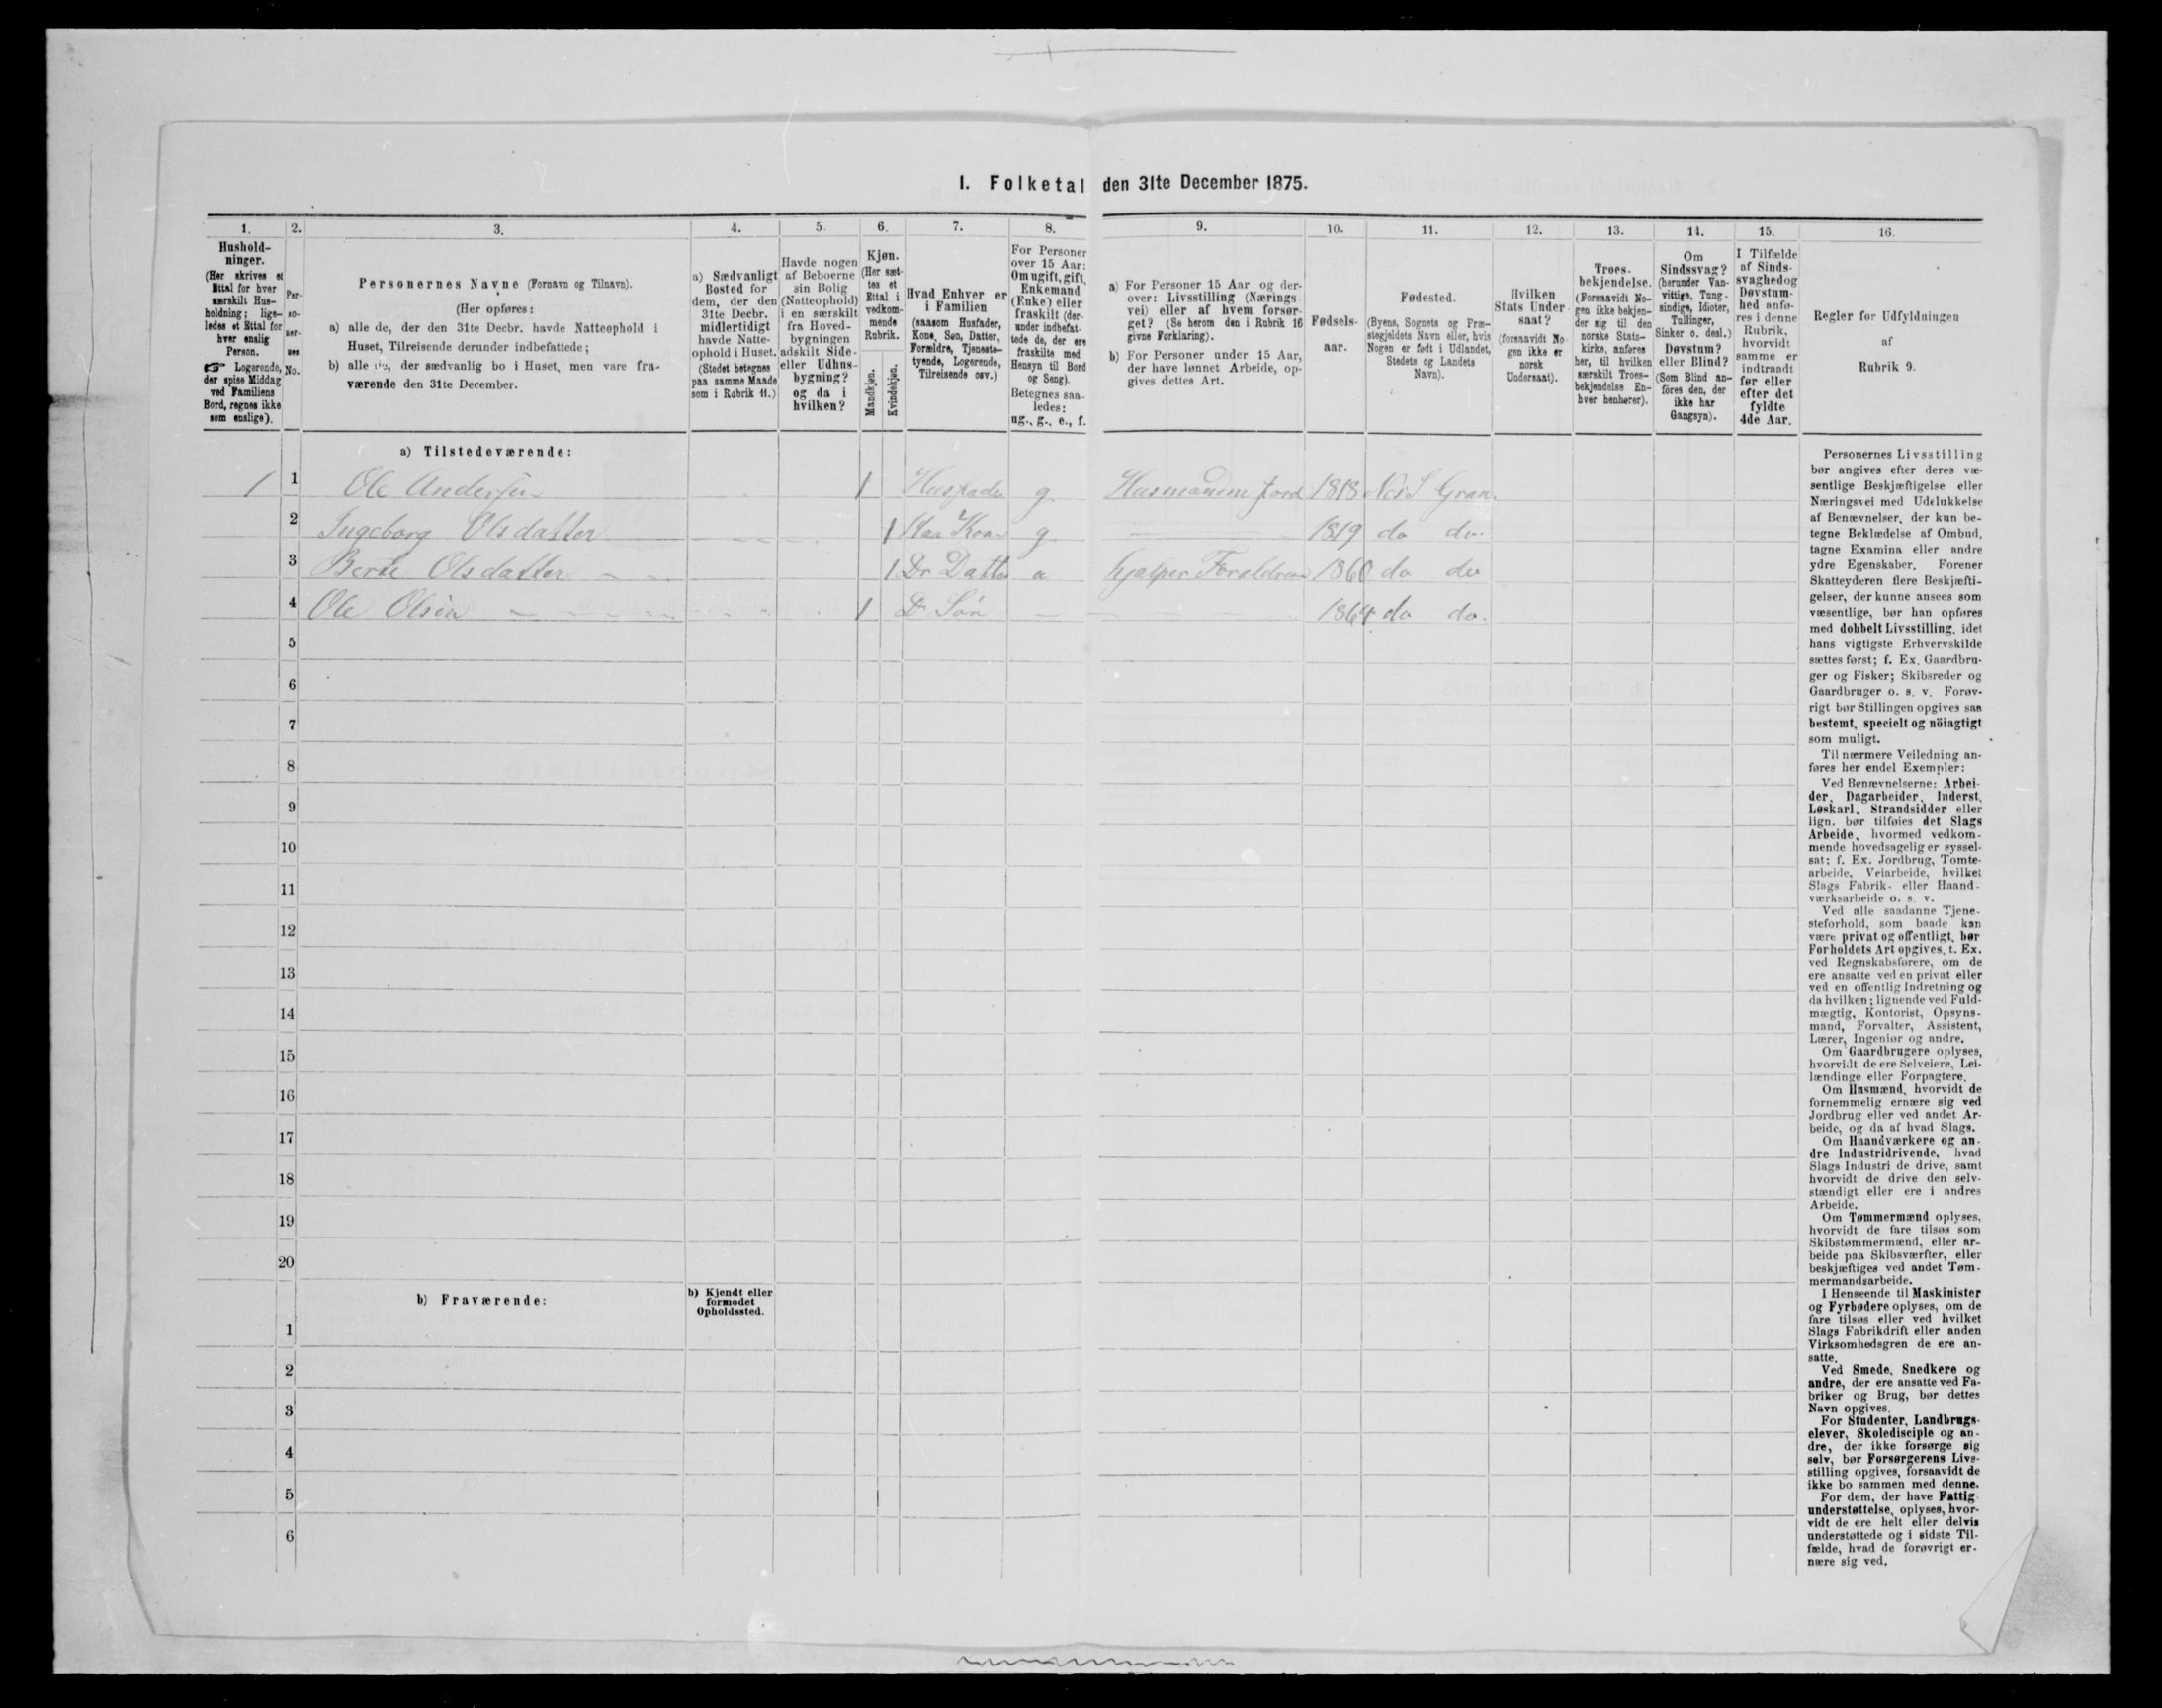 I. Folketal den 31te December 1875.
1.
2.
3.
4.
5.
6.
7.
8.
9.
10.
11.
12.
13.
14.
15.
16.
Hushold-
ninger.
(Her skrives et
Ettal for hver
særskilt Hus-
holdning; lige-
ledes et Ettal for
hver enslig
Person.
☞ Logerende,
der spise Middag
ved Familiens
Bord, regnes ikke
som enslige).
Per-
so-
ner-
nes
No.
Personernes Navne (Fornavn og Tilnavn).
(Her opføres:
a) alle de, der den 31te Decbr. havde Natteophold i
Huset, Tilreisende derunder indbefattede;
b) alle de, der sædvanlig bo i Huset, men vare fra-
værende den 31te December.
a) Sædvanligt
Bosted for
dem, der den
31te Decbr.
midlertidigt
havde Natte-
ophold i Huset.
(Stedet betegnes
paa samme Maade
som i Rubrik 11.)
Havde nogen
af Beboerne
sin Bolig
(Natteophold)
i en særskilt
fra Hoved-
bygningen
adskilt Side-
eller Udhus-
bygning?
og da i
hvilken?
Kjøn.
(Her sæt-
tes et
Ettal i
vedkom-
mende
Rubrik.
Mandkjøn.
Kvindekjøn.
Hvad Enhver er
i Familien
(saasom Husfader,
Kone, Søn, Datter,
Forældre, Tjeneste-
tyende, Logerende,
Tilreisende osv.)
For Personer
over 15 Aar:
Om ugift, gift,
Enkemand
(Enke) eller
fraskilt (der-
under indbefat-
tede de, der ere
fraskilte med
Hensyn til Bord
og Seng).
Betegnes saa-
ledes:
ug., g., e., f.
a) For Personer 15 Aar og der-
over: Livsstilling (Nærings-
vei) eller af hvem forsør-
get? (Se herom den i Rubrik 16
givne Forklaring).
b) For Personer under 15 Aar,
der have lønnet Arbeide, op-
gives dettes Art.
Fødsels-
aar.
Fødested.
(Byens, Sognets og Præ-
stegjeldets Navn eller, hvis
Nogen er født i Udlandet,
Stedets og Landets
Navn).
Hvilken
Stats Under-
saat?
(forsaavidt No-
gen ikke er
norsk
Undersaat).
Troes-
bekjendelse.
(Forsaavidt No-
gen ikke bekjen-
der sig til den
norske Stats-
kirke, anføres
her, til hvilken
særskilt Troes-
bekjendelse En-
hver henhører).
Om
Sindssvag?
(herunder Van-
vittige, Tung-
sindige, Idioter,
Tullinger,
Sinker o. desl.)
Døvstum?
eller Blind?
(Som Blind an-
føres den, der
ikke har
Gangsyn).
I Tilfælde
af Sinds-
svaghed og
Døvstum-
hed anfø-
res i denne
Rubrik,
hvorvidt
samme er
indtraadt
før eller
efter det
fyldte
4de Aar.
Regler for Udfyldningen
af
Rubrik 9.
a) Tilstedeværende:
1 1 Ole Andersen 1 Husfader g Husmand m Jord 1818 Gran.
2 Ingeborg Olsdatter 1 g 1819 do do
3 Olsdatter 1 Datter hjælper Foreldrene 1860 do do
4 Ole Olsen 1 Søn 1864 do do.
5
6
7
8
9
10
11
12
13
14
15
16
17
18
19
20
b) Fraværende:
b) Kjendt eller
formodet
Opholdssted.
1
2
3
4
5
6
Personernes Livsstilling
bør angives efter deres væ-
sentlige Beskjæftigelse eller
Næringsvei med Udelukkelse
af Benævnelser, der kun be-
tegne Beklædelse af Ombud,
tagne Examina eller andre
ydre Egenskaber. Forener
Skatteyderen flere Beskjæfti-
gelser, der kunne ansees som
væsentlige, bør han opføres
med dobbelt Livsstilling, idet
hans vigtigste Erhvervskilde
sættes først; f. Ex. Gaardbru-
ger og Fisker; Skibsreder og
Gaardbruger o. s. v. Forøv-
rigt bør Stillingen opgives saa
bestemt, specielt og nöiagtigt
som muligt.
Til nærmere Veiledning an-
føres her endel Exempler:
Ved Benævnelserne: Arbei-
der, Dagarbeider, Inderst,
Løskarl, Strandsidder eller
lign. bør tilføies det Slags
Arbeide, hvormed vedkom-
mende hovedsagelig er syssel-
sat; f. Ex. Jordbrug, Tomte-
arbeide, Veiarbeide, hvilket
Slags Fabrik- eller Haand-
værksarbeide o. s. v.
Ved alle saadanne Tjene-
steforhold, som baade kan
være privat og offentligt, bør
Forholdets Art opgives, t. Ex.
ved Regnskabsførere, om de
ere ansatte ved en privat eller
ved en offentlig Indretning og
da hvilken; lignende ved Fuld-
mægtig, Kontorist, Opsyns-
mand, Forvalter, Assistent,
Lærer, Ingeniør og andre.
Om Gaardbrugere oplyses,
hvorvidt de ere Selveiere, Lei-
lændinge eller Forpagtere.
Om Husmænd, hvorvidt de
fornemmelig ernære sig ved
Jordbrug eller ved andet Ar-
beide, og da af hvad Slags.
Om Haandværkere og an-
dre Industridrivende, hvad
Slags Industri de drive, samt
hvorvidt de drive den selv-
stændigt eller ere i andres
Arbeide.
Om Tømmermænd oplyses,
hvorvidt de fare tilsøs som
Skibstømmermænd, eller ar-
beide paa Skibsværfter, eller
beskjæftiges ved andet Tøm-
mermandsarbeide.
I Henseende til Maskinister
og Fyrbødere oplyses, om de
fare tilsøs eller ved hvilket
Slags Fabrikdrift eller anden
Virksomhedsgren de ere an-
satte.
Ved Smede, Snedkere og
andre, der ere ansatte ved Fa-
briker og Brug, bør dettes
Navn opgives.
For Studenter, Landbrugs-
elever, Skoledisciple og an-
dre, der ikke forsørge sig
selv, bør Forsørgerens Livs-
stilling opgives, forsaavidt de
ikke bo sammen med denne.
For dem, der have Fattig-
understøttelse, oplyses, hvor-
vidt de ere helt eller delvis
understøttede og i sidste Til-
fælde, hvad de forøvrigt er-
nære sig ved.